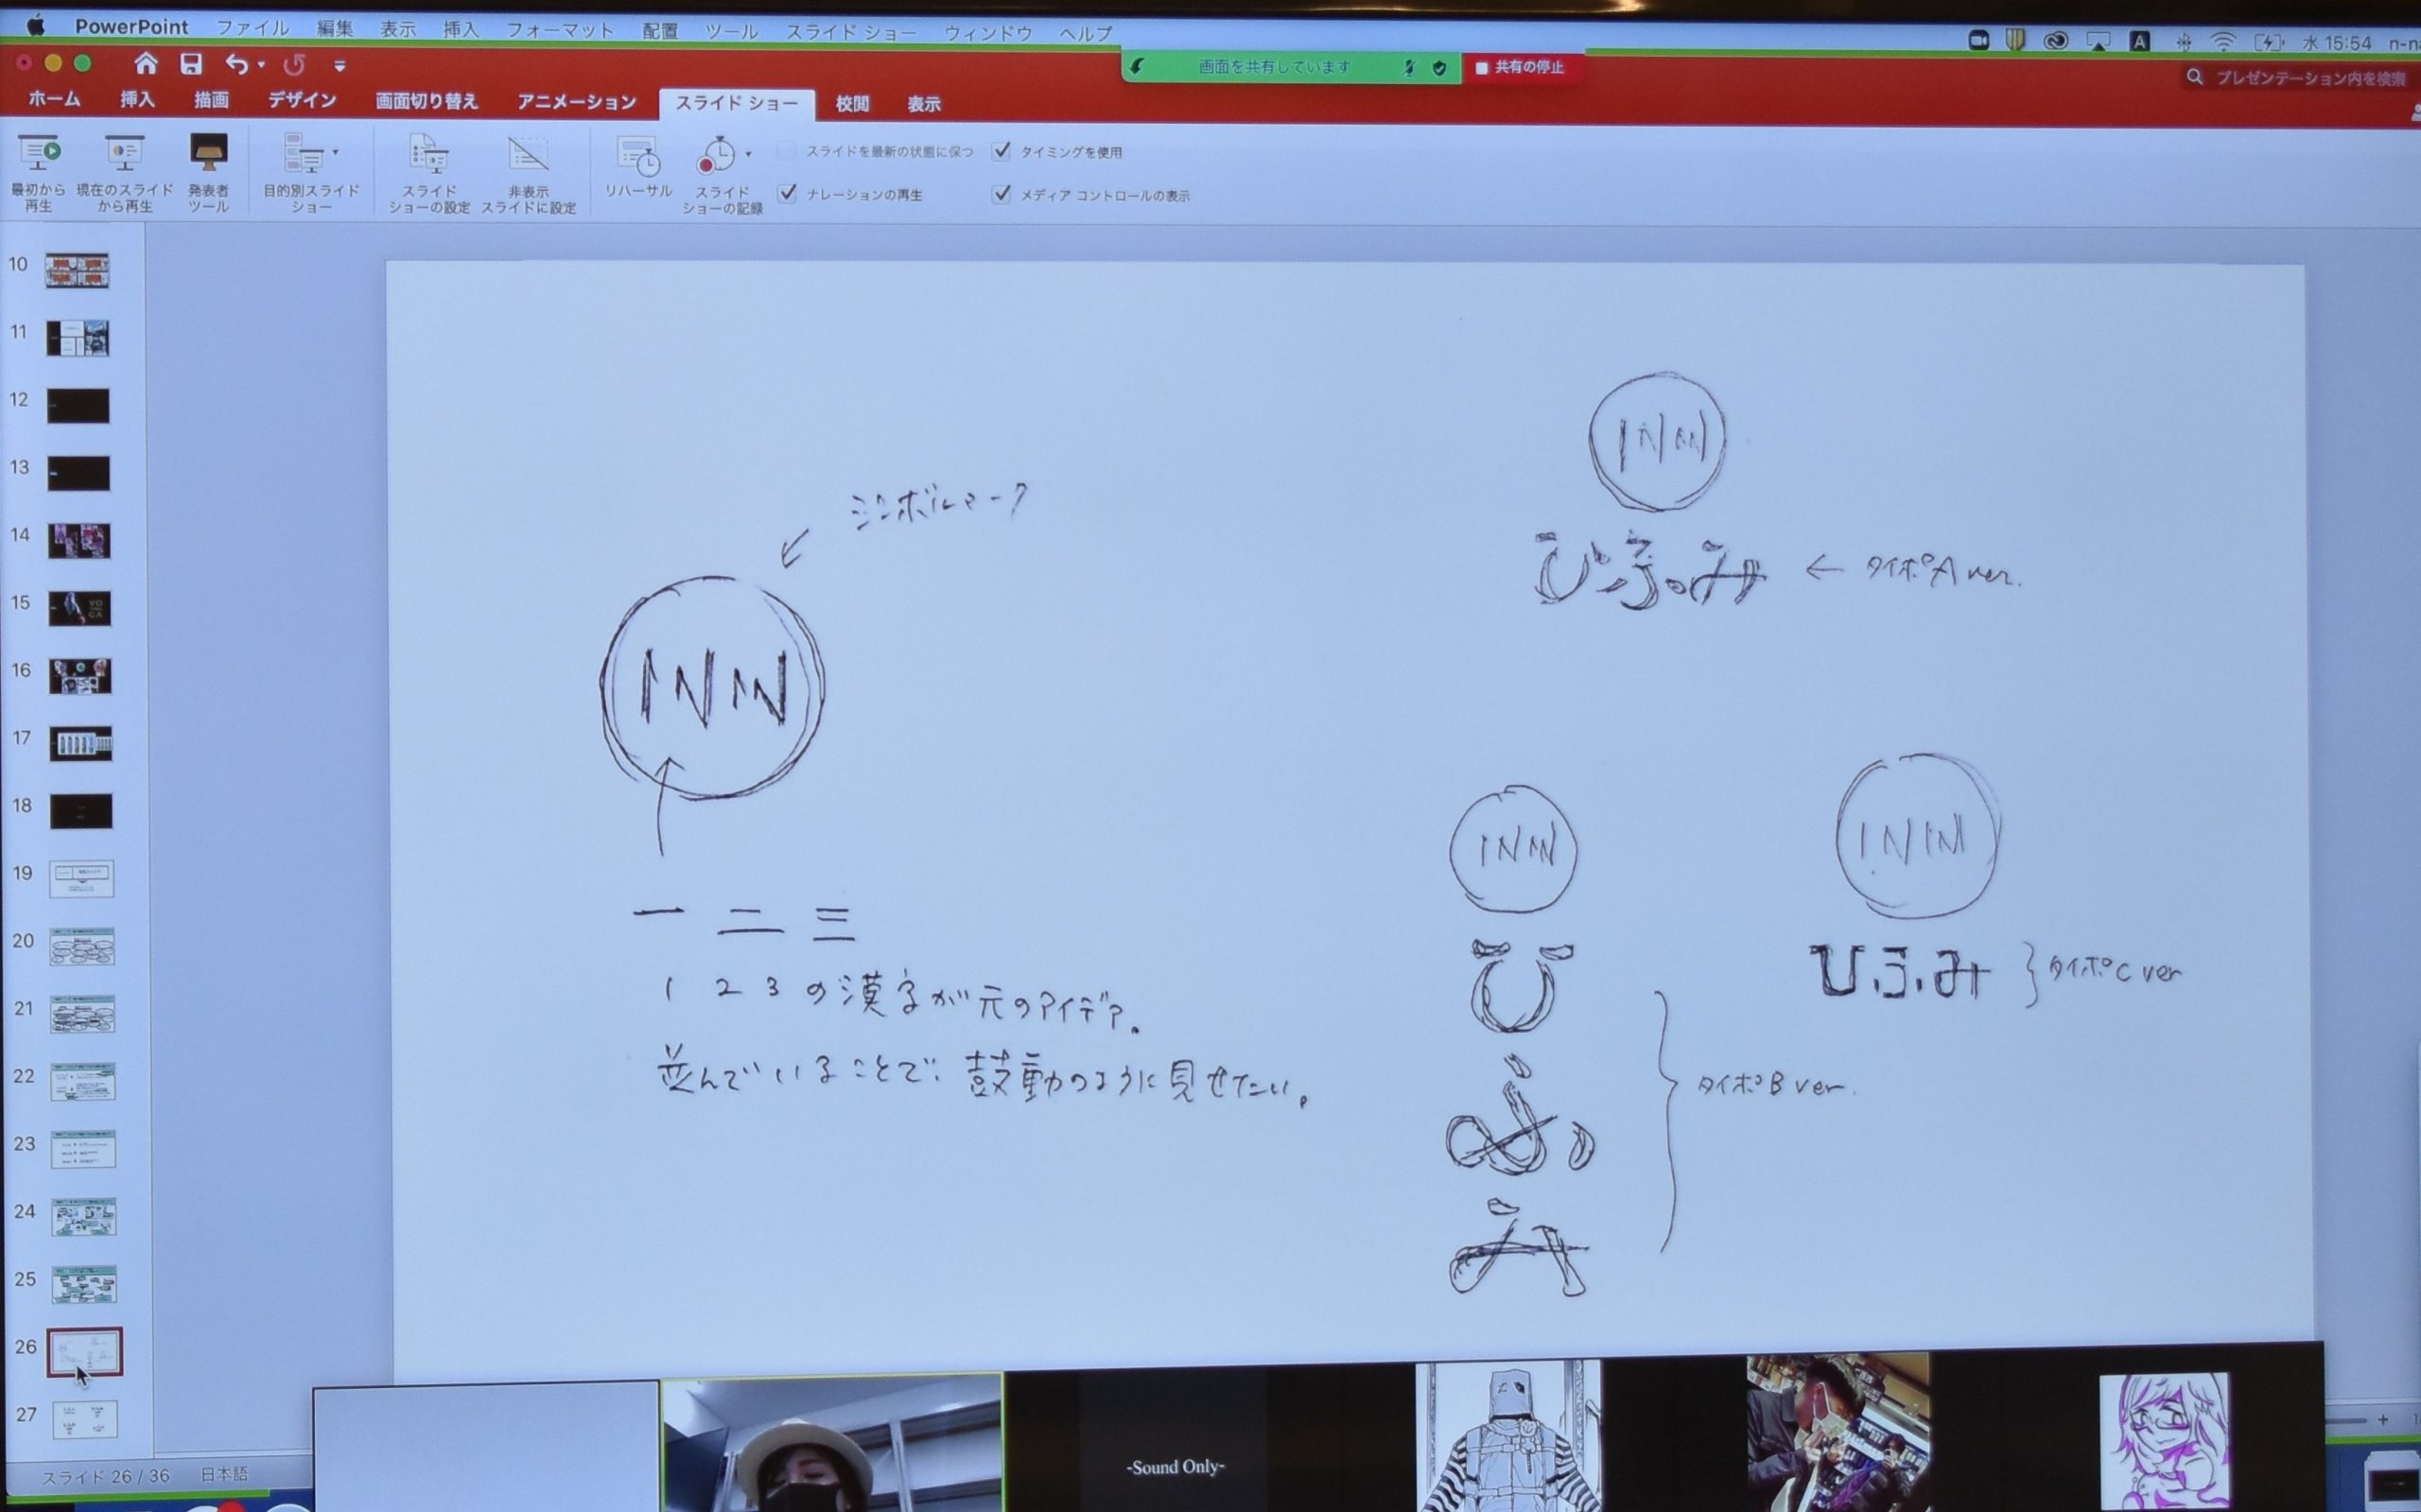 PowerPoint ファイル 編集 表示 挿入 フォーマット 配置 ツール スライド ショー ウィンドウ ヘルプ
A 水 15:54
画面を共有しています 共有の停止
プレゼンテーション内を検索
ホーム 挿入 描画 デザイン 画面切り替え アニメーション スライド ショー 校閲 表示
最初から
再生
現在のスライド
から再生
発表者
ツール
目的別スライド
ショー
スライド
ショーの設定
非表示
スライドに設定
リハーサル
スライド
ショーの記録
スライドを最新の状態に保つ
ナレーションの再生
タイミングを使用
メディア コントロールの表示
10
11
12
13
14
15
16
17
18
19
20
21
22
23
24
25
26
27
シンボルマーク
一 二 三
1 2 3 の漢字が元のアイデア。
並んでいることで、鼓動のように見せたい。
ひふみ ← タイポA ver.
ひ
ふ
み
タイポB ver.
ひふみ } タイポC ver
-Sound Only-
スライド 26 / 36 日本語